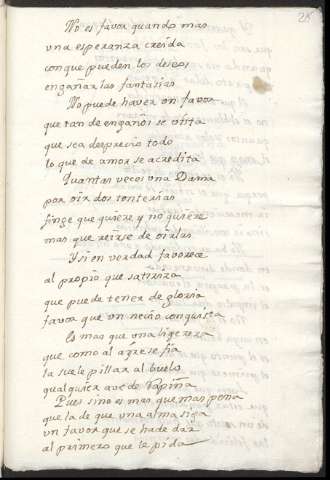 25
No es favor quando mas
una esperanza creida
con que pueden los deseos
engañar las fantasias
No puede haver un favor
que tan de engaños se vista
que sea desprecio todo
lo que de amor se acredita
Quantas veces una Dama
por oir dos tonterias
finge que quiere y no quiere
mas que reirse de oirlas
Y si en verdad favorece
al propio que satiriza
que puede tener de gloria
favor que un necio conquista
Es mas que una ligereza
que como al ayre se fia
la suele pillar al buelo
qualquier ave de rapiña
Pues si no es mas que mas pena
que la de que una alma siga
un favor que se ha de dar
al primero que le pida